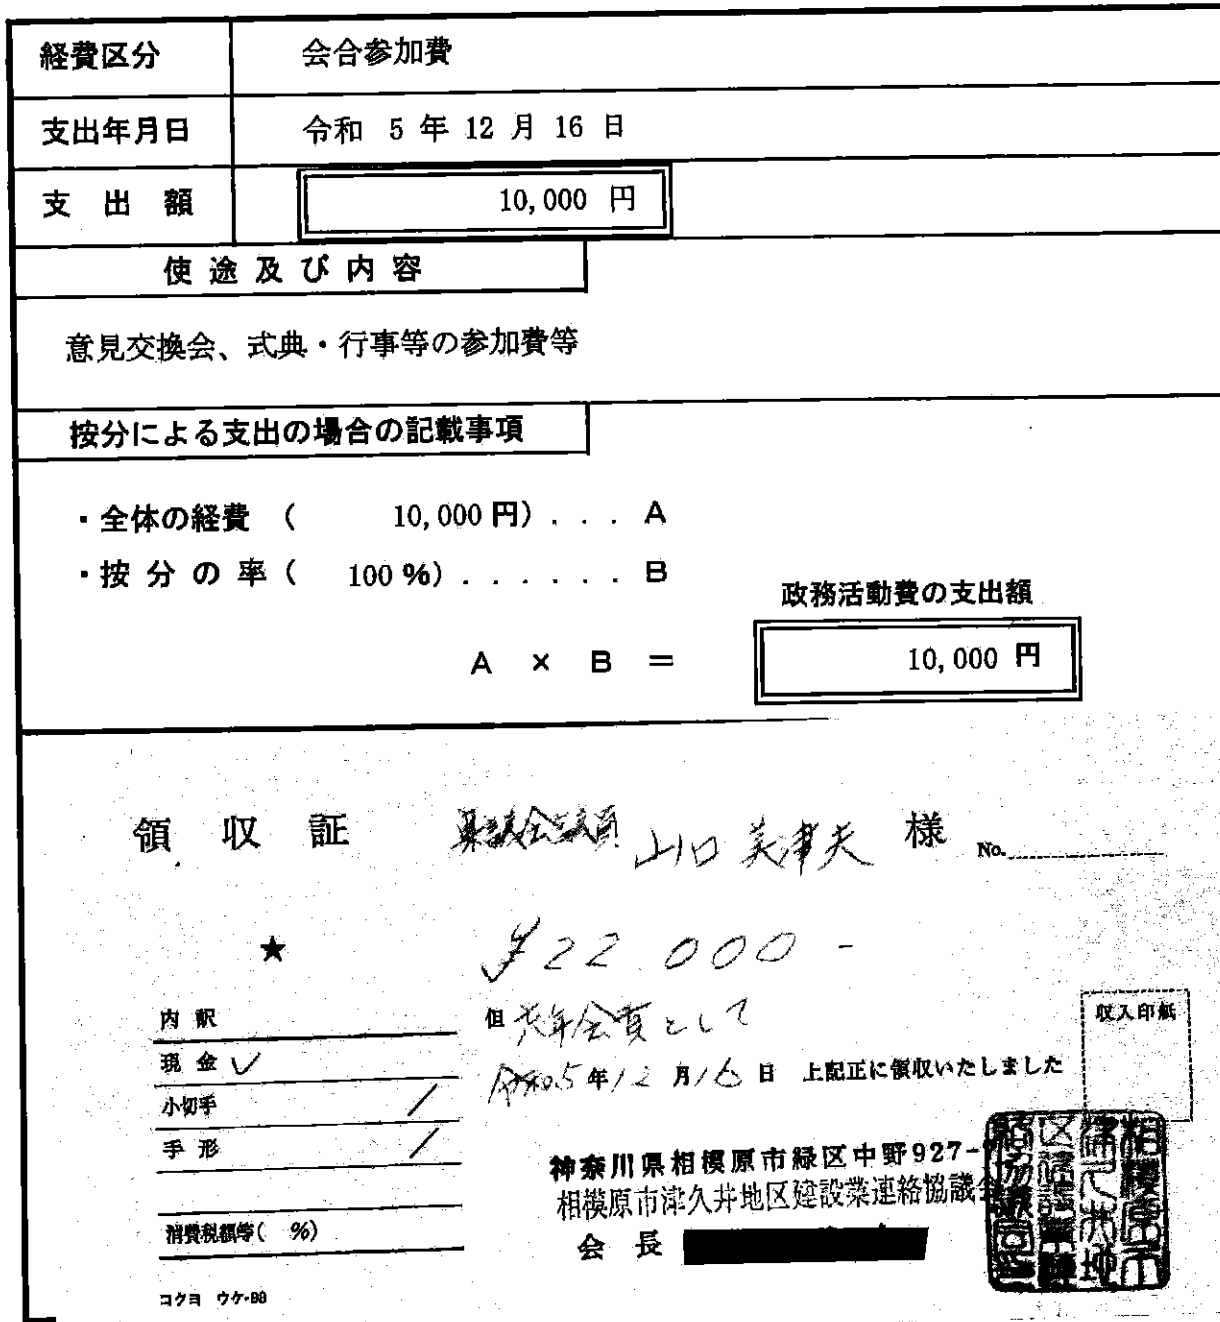 経費区分 会合参加費
支出年月日 令和 5 年 12 月 16 日
支 出 額 10,000 円
使 途 及 び 内 容
意見交換会、式典・行事等の参加費等
按分による支出の場合の記載事項
・全体の経費 ( 10,000 円) . . . A
・按 分 の 率 ( 100 %) . . . . . . B
政務活動費の支出額
A × B = 10,000 円
領 収 証 県議会議員 山口 美津夫 様 No.
★ ¥22,000-
内 訳
但 忘年会費として
収入印紙
現 金 ✓
令和5 年 12 月 16 日 上記正に領収いたしました
小切手
手 形
神奈川県相模原市緑区中野927-
相模原市津久井地区建設業連絡協議会
消費税額等( %)
会 長
コクヨ ウケ-98